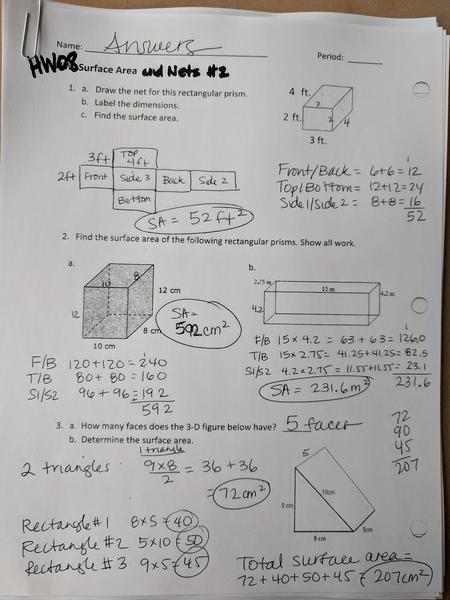 Name: Answers
Period:
HW08 Surface Area and Nets #2
1. a. Draw the net for this rectangular prism.
b. Label the dimensions.
c. Find the surface area.
4 ft.
2 ft.
3 ft.
3
2
4
3ft
Top
4ft
2ft
Front
Side 3
Back
Side 2
Bottom
SA = 52ft²
Front/Back = 6+6=12
Top/Bottom = 12+12=24
Side1/Side2 = 8+8=16
52
2. Find the surface area of the following rectangular prisms. Show all work.
a.
10
8
12 cm
12
8 cm
10 cm
SA=
592cm²
F/B 120+120=240
T/B 80+80=160
S1/S2 96+96=192
592
b.
2.75 m
15 m
4.2 m
4.2
F/B 15×4.2 = 63+63=126.0
T/B 15×2.75=41.25+41.25=82.5
S1/S2 4.2×2.75=11.55+11.55=23.1
231.6
SA=231.6m²
3. a. How many faces does the 3-D figure below have? 5 faces
b. Determine the surface area.
1 triangle
2 triangles: 9×8/2 = 36+36
=72cm²
72
90
45
207
5
10cm
9 cm
8 cm
5cm
Rectangle #1 8×5=40
Rectangle #2 5×10=50
Rectangle #3 9×5=45
Total surface area =
72+40+50+45=207cm²